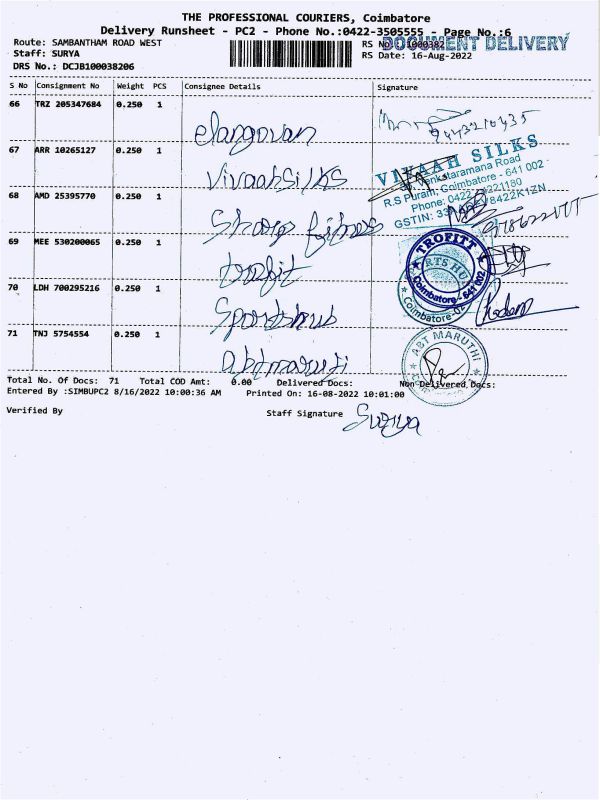 THE PROFESSIONAL COURIERS, Coimbatore
Delivery Runsheet - PC2 - Phone No.:0422-3505555 - Page No.:6
Route: SAMBANTHAM ROAD WEST
RS No.
DOCUMENT DELIVERY
Staff: SURYA
RS Date: 16-Aug-2022
DRS No.: DCJB100038206
S No Consignment No Weight PCS Consignee Details Signature
66 TRZ 205347684 0.250 1
elangovan
67 ARR 10265127 0.250 1
VivaahSilks
VIVAAH SILKS
Venkataramana Road
R.S Puram, Coimbatore - 641 002
68 AMD 25395770 0.250 1
69 MEE 530200065 0.250 1
TROFITT
Coimbatore - 641 002
70 LDH 700295216 0.250 1
Sportshub
71 TNJ 5754554 0.250 1
abtmaruti
ABT MARUTHI
Total No. Of Docs: 71 Total COD Amt: 0.00 Delivered Docs: Non Delivered Docs:
Entered By :SIMBUPC2 8/16/2022 10:00:36 AM Printed On: 16-08-2022 10:01:00
Verified By Staff Signature Surya